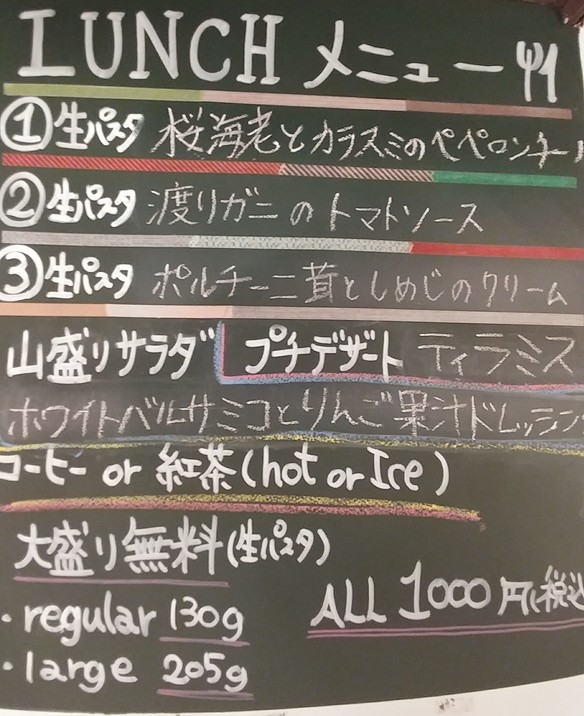 LUNCH メニュー
①生パスタ 桜海老とカラスミのペペロンチーノ
②生パスタ 渡りガニのトマトソース
③生パスタ ポルチーニ茸としめじのクリーム
山盛りサラダ プチデザート ティラミス
ホワイトバルサミコとりんご果汁ドレッシン
コーヒー or 紅茶(hot or Ice)
大盛り無料(生パスタ)
・regular 130g ALL 1000円(税込
・large 205g